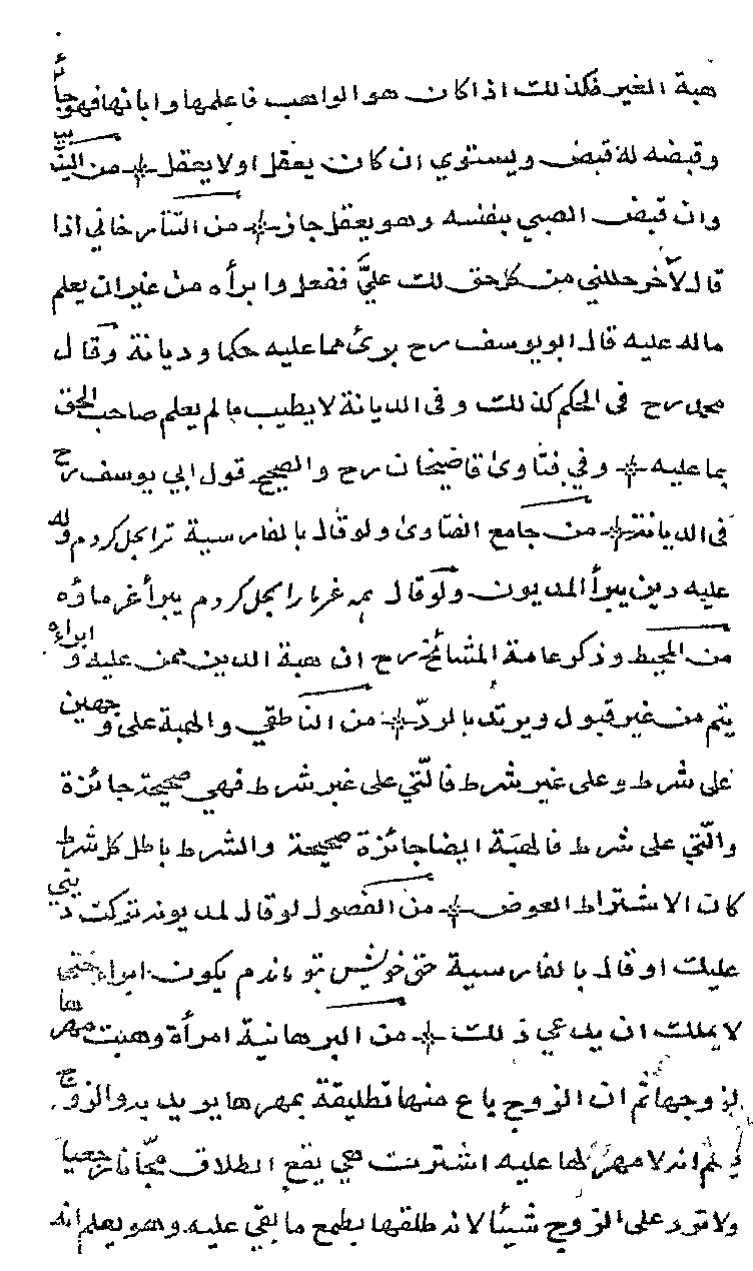 هبة الغير فكذلك اذا كان هو الواهب فاعلمها وابانها فهو جائز
وقبضه له قبض ويستوي ان كان يعقل او لا يعقل من
وان قبض الصبي بنفسه وهو يعقل جاز من التتارخاني اذا
قال لآخر حللني من كل حق لك عليّ ففعل وابرأه من غير ان يعلم
ماله عليه قال ابو يوسف رح برئ مما عليه حكما وديانة وقال
محمد رح في الحكم كذلك وفي الديانة لا يطيب ما لم يعلم صاحب الحق
بما عليه وفي فتاوى قاضيخان رح والصحيح قول ابي يوسف رح
في الديانة من جامع الفتاوى ولو قال بالفارسية ترا بحل كردم وله
عليه دين يبرأ المديون ولو قال همه غرما را بحل كردم يبرأ غرماؤه
من المحيط وذكر عامة المشائخ رح ان هبة الدين ممن عليه وابراءه
يتم من غير قبول ويرتد بالردّ من الناطقي والهبة على وجهين
على شرط وعلى غير شرط فالّتي على غير شرط فهي صحيحة جائزة
والّتي على شرط فالهبة ايضا جائزة صحيحة والشرط باطل كل شرط
كان الا شتراط العوض من الفصول لو قال لمديونه تركت ديني
عليك او قال بالفارسية حق خويش بتو ماندم يكون ابراء حتى
لا يملك ان يدعي ذلك من البرهانية امرأة وهبت مهرها
لزوجها ثم ان الزوج باع منها تطليقة بمهرها يريد به والزوج
يعلم انه لا مهر لها عليه اشترت هي يقع الطلاق مجّانا رجعيا
ولا ترد على الزوج شيئا لانه طلقها بطمع ما بقي عليه وهو يعلم انه